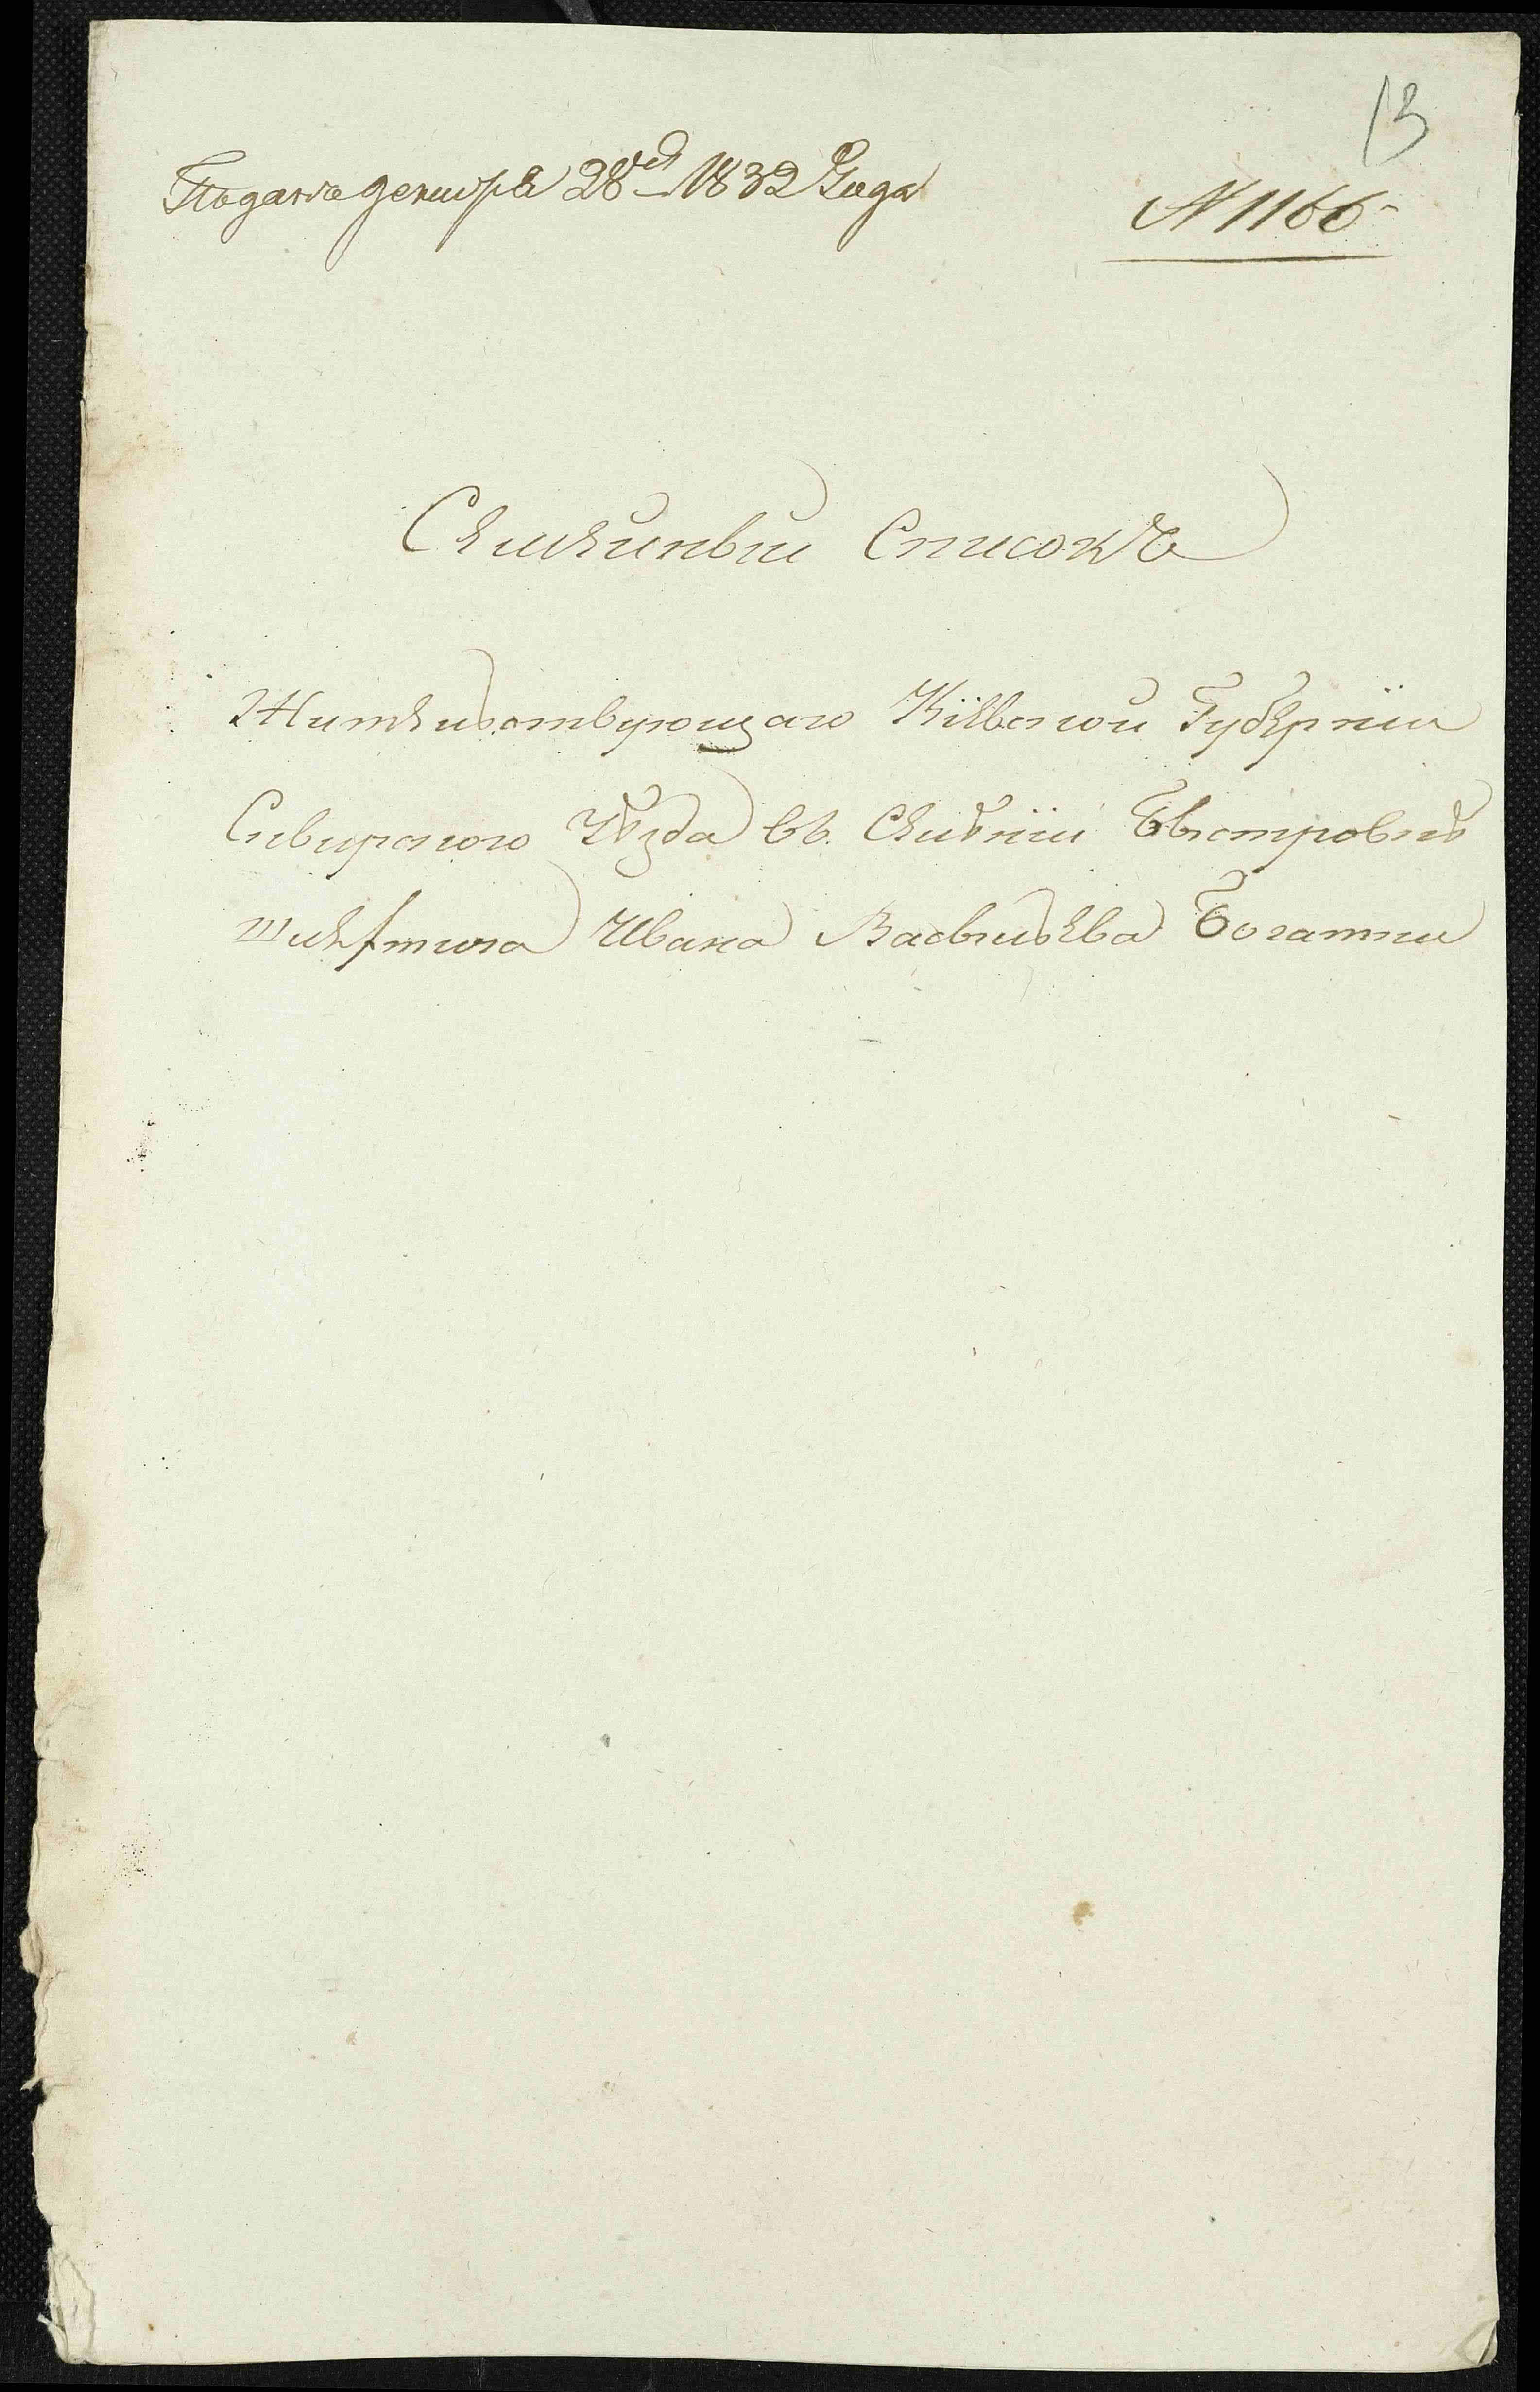 13
Поданъ декабря 28го 1832 Года
N 1166
Семейный Списокъ
Жительствующаго Кіевской Губерніи
Сквирскаго Уезда въ Селеніи Быстровке
шляхтича Ивана Васильева Богатки